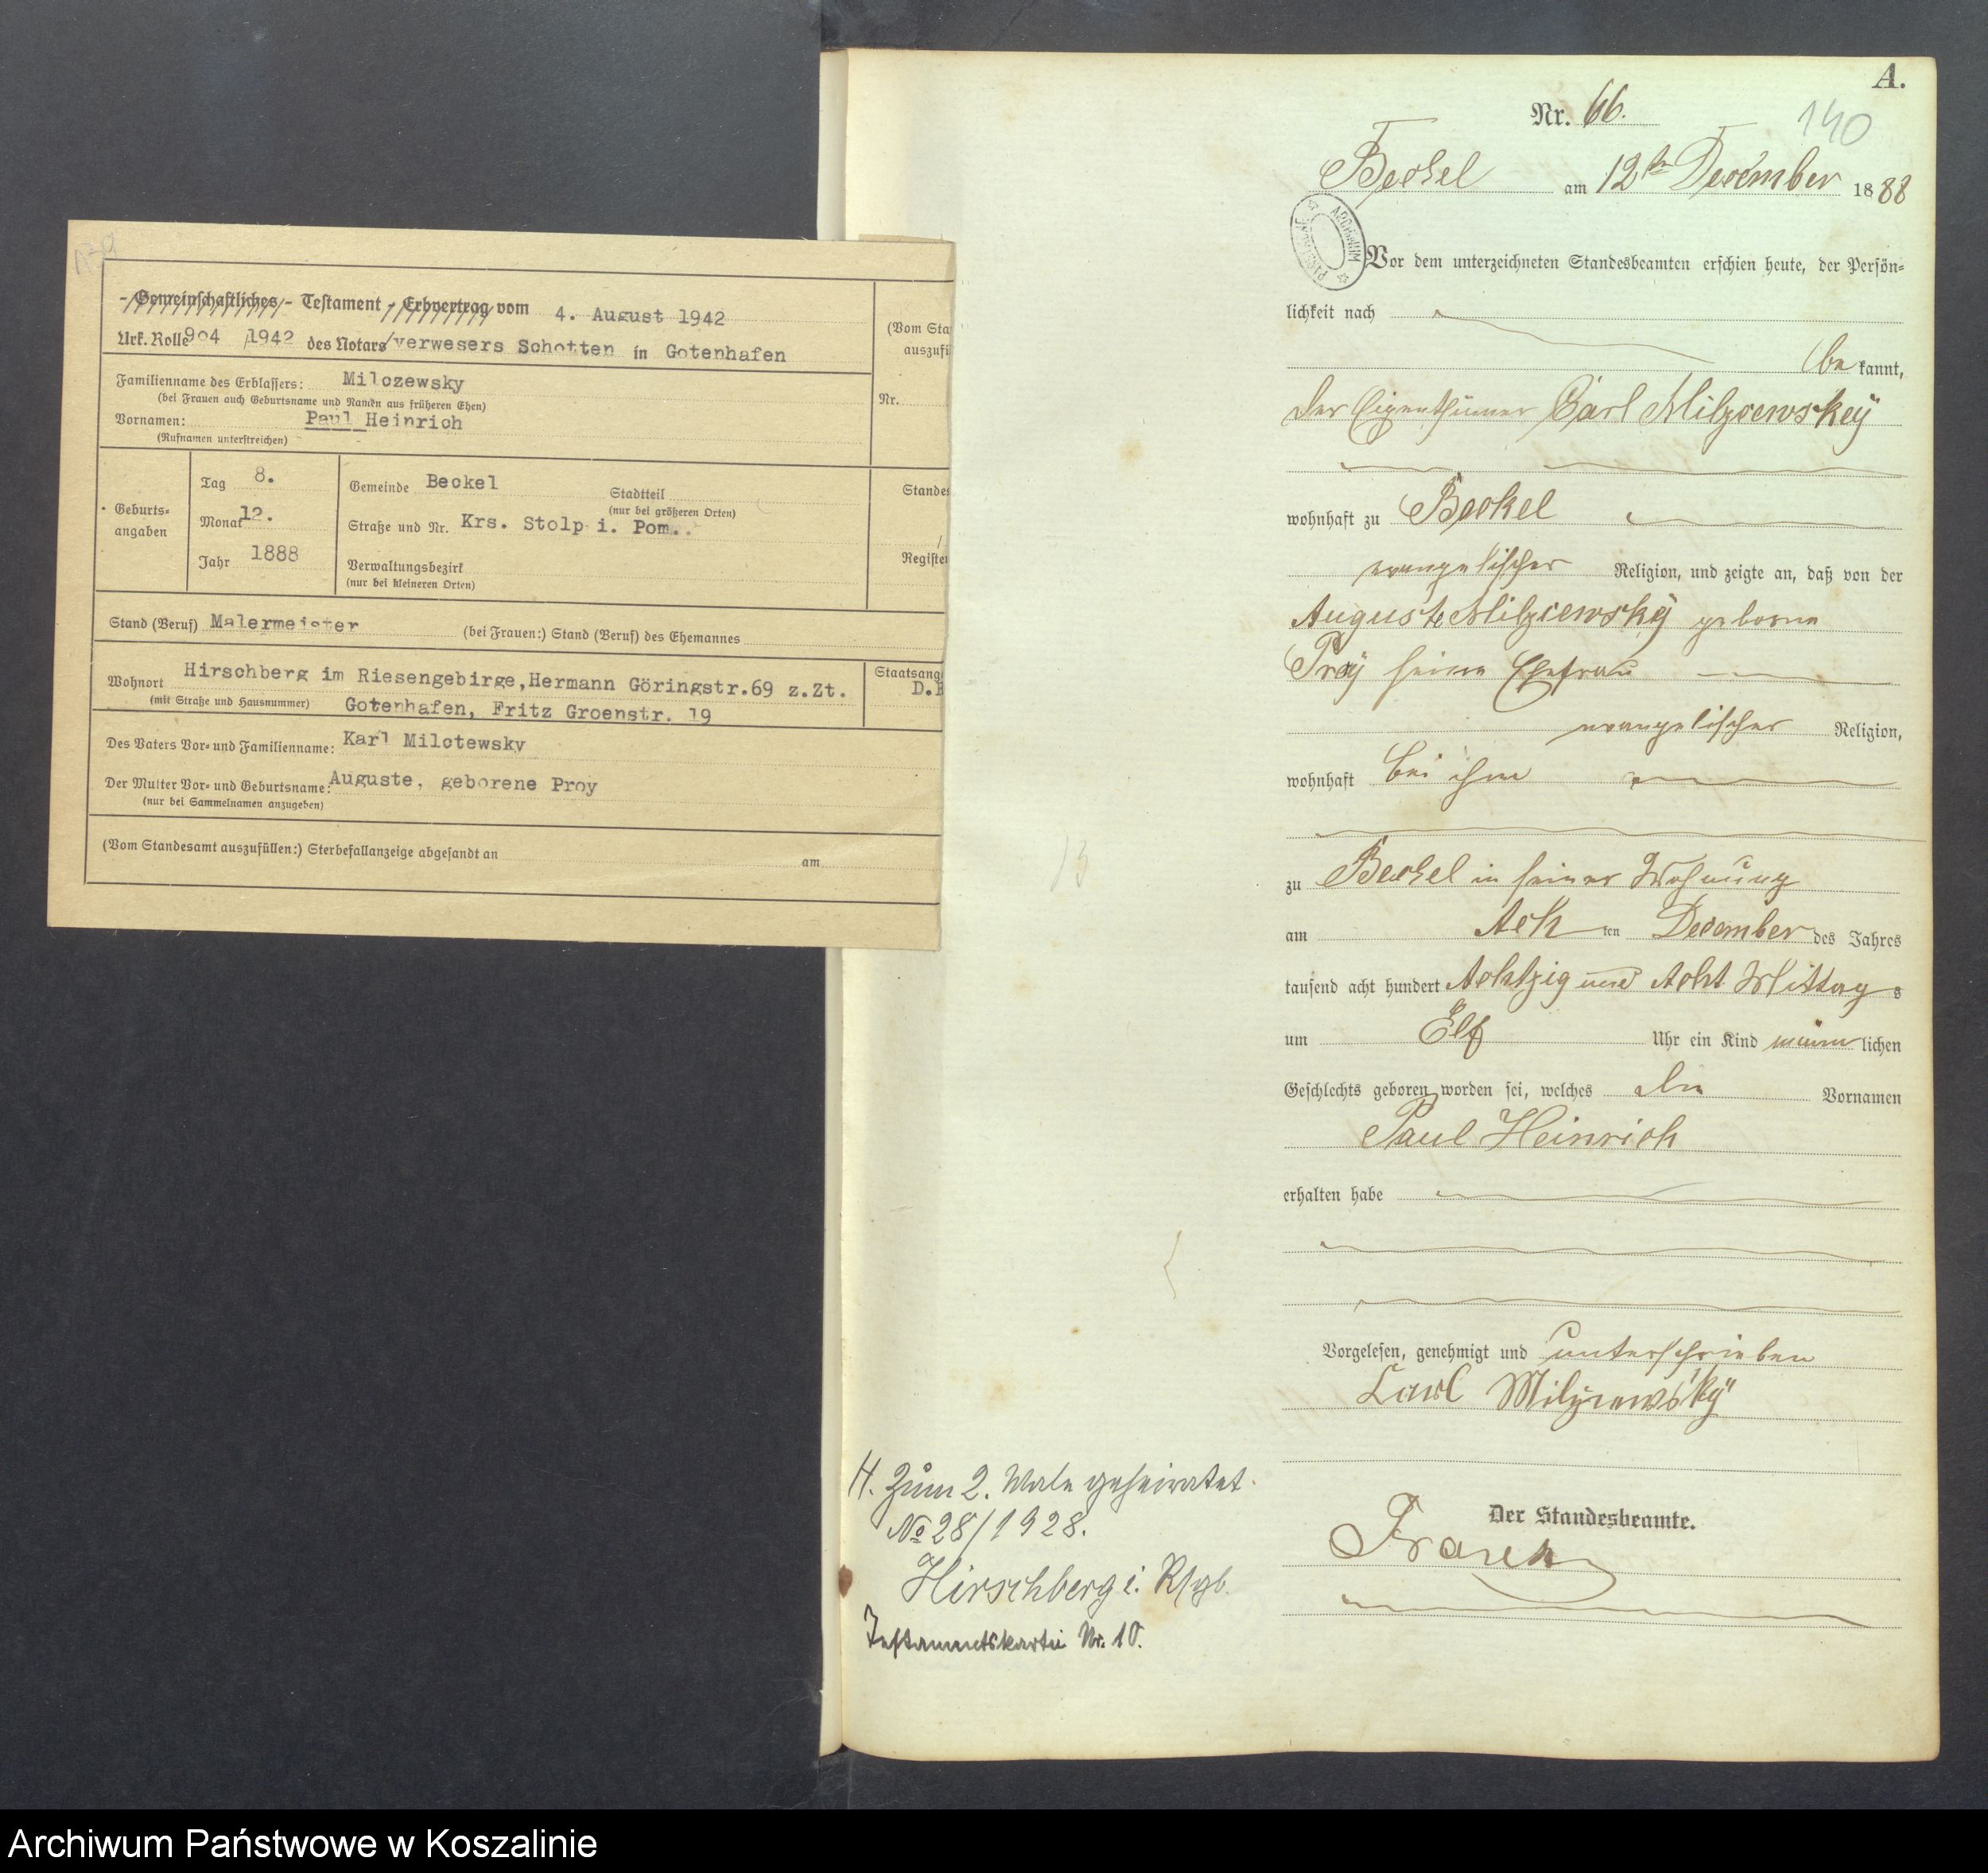 - Gemeinschaftliches - Testament - Erbvertrag vom 4. August 1942
Urk. Rolle 904 / 1942 des Notars/verwesers Schotten in Gotenhafen
Familienname des Erblassers: Milczewsky
(bei Frauen auch Geburtsname und Namen aus früheren Ehen)
Vornamen: Paul Heinrich
(Rufnamen unterstreichen)
(Vom Sta
auszufü
Nr.
Geburts-
angaben
Tag 8.
Monat 12.
Jahr 1888
Gemeinde Beckel Stadtteil
(nur bei größeren Orten)
Straße und Nr. Krs. Stolp i. Pom..
Verwaltungsbezirk
(nur bei kleineren Orten)
Standes
Register
Stand (Beruf) Malermeister (bei Frauen:) Stand (Beruf) des Ehemannes
Wohnort Hirschberg im Riesengebirge, Hermann Göringstr.69 z.Zt.
(mit Straße und Hausnummer) Gotenhafen, Fritz Groenstr. 19
Staatsang
D.R
Des Vaters Vor- und Familienname: Karl Milctewsky
Der Mutter Vor- und Geburtsname: Auguste, geborene Proy
(nur bei Sammelnamen anzugeben)
(Vom Standesamt auszufüllen:) Sterbefallanzeige abgesandt an am
A.
Nr. 66.
140
Beckel am 12ten December 1888
ARCHIWUM PAŃSTWOWE
Vor dem unterzeichneten Standesbeamten erschien heute, der Persön-
lichkeit nach
bekannt,
der Eigenthümer Carl Milzcewskey
wohnhaft zu Beckel
evangelischer Religion, und zeigte an, daß von der
Auguste Milzcewsky geborne
Proy seine Ehefrau
evangelischer Religion,
wohnhaft bei ihm
zu Beckel in seiner Wohnung
am Achten December des Jahres
tausend acht hundert Achtzig und Acht Mittags
um Elf Uhr ein Kind männlichen
Geschlechts geboren worden sei, welches die Vornamen
Paul Heinrich
erhalten habe
Vorgelesen, genehmigt und unterschrieben
Carl Milzcewsky
Der Standesbeamte.
13
H. Zum 2. Male geheiratet.
No 28/1928.
Hirschberg i. Rsgb.
Testamentskartei Nr. 10.
Archiwum Państwowe w Koszalinie